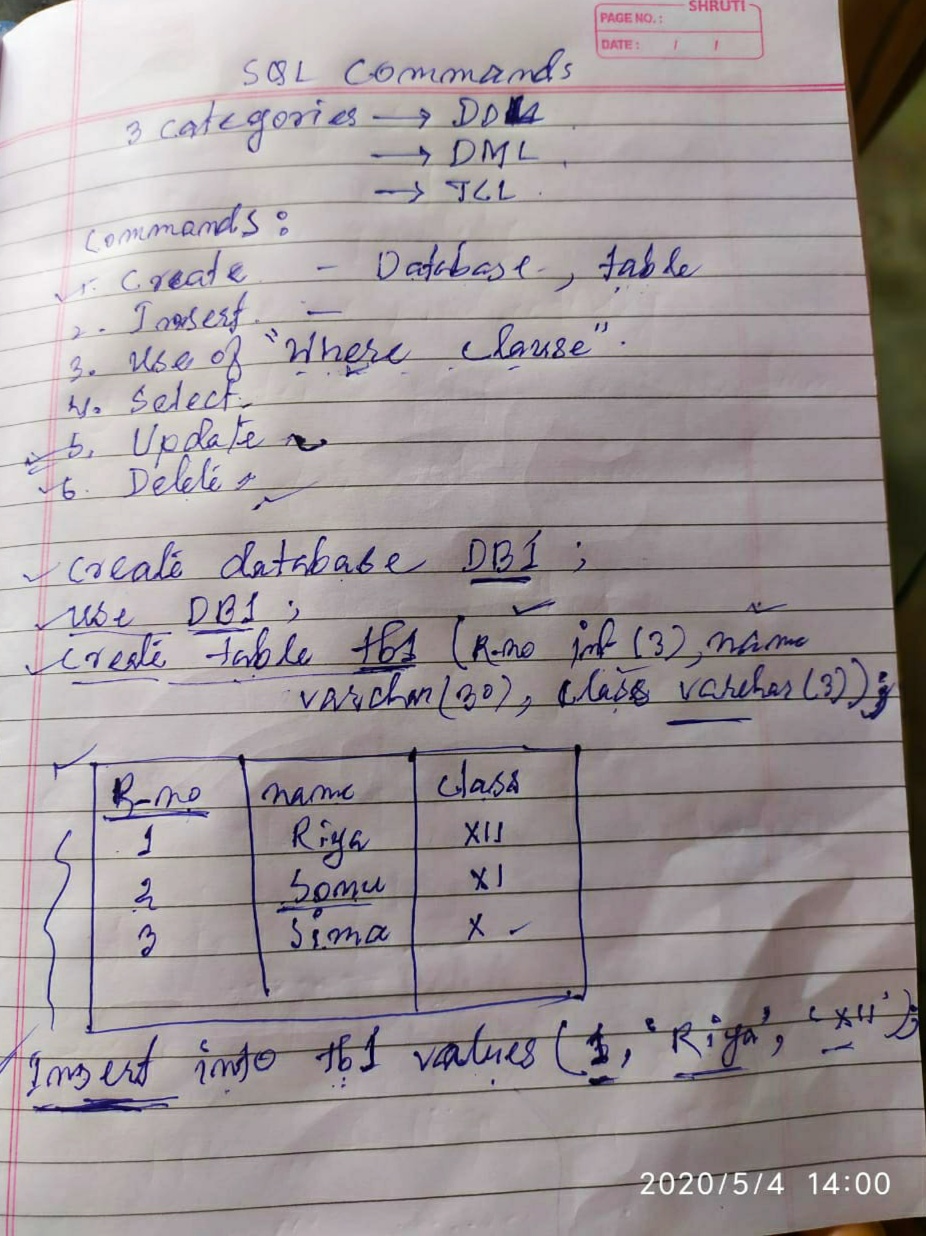 SHRUTI
PAGE NO.:
DATE: / /
SQL Commands
3 categories → DDL
→ DML
→ TCL
Commands:
1. Create - Database, table
2. Insert -
3. Use of "Where clause".
4. Select
5. Update
6. Delete
create database DB1;
use DB1;
create table tb1 (R-no int (3), name
varchar(30), class varchar(3));
R-no name class
1 Riya XII
2 Somu XI
3 Sima X
Insert into tb1 values (1, 'Riya', 'XII');
2020/5/4 14:00